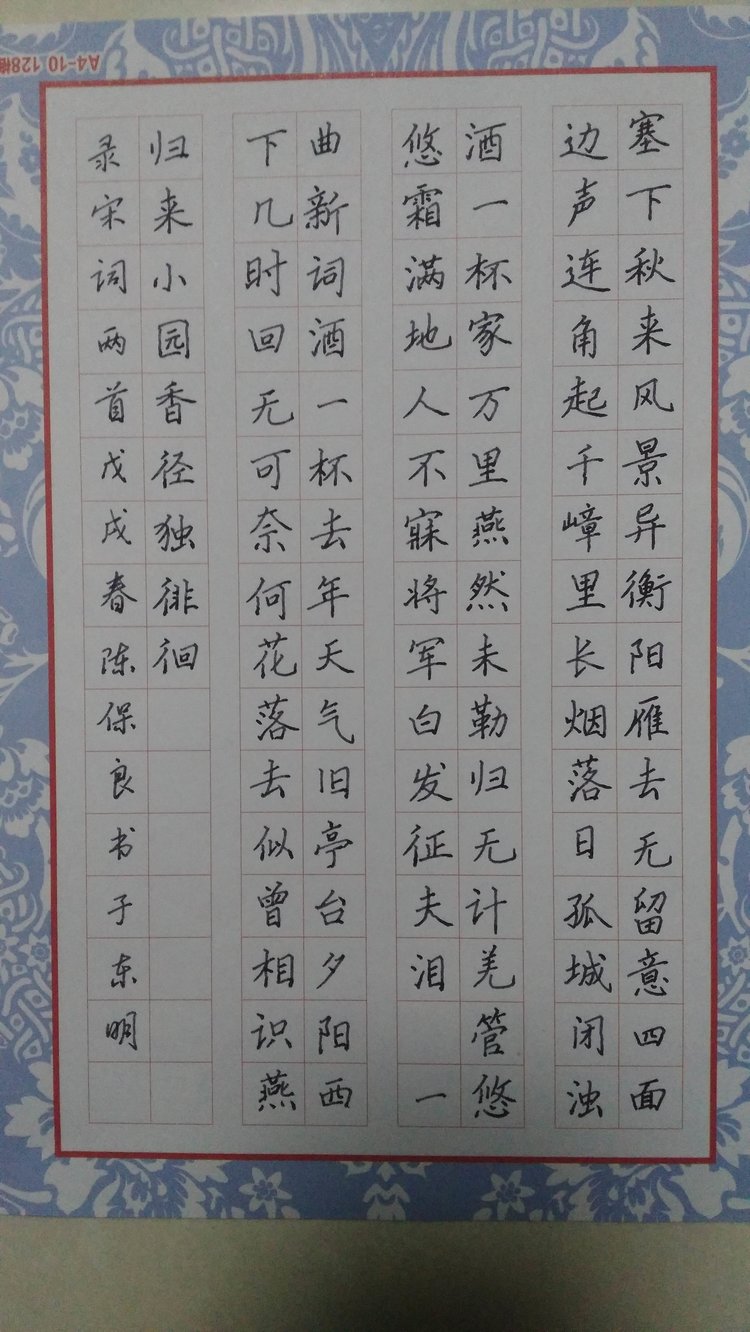 塞下秋来风景异衡阳雁去无留意四面
边声连角起千嶂里长烟落日孤城闭浊
酒一杯家万里燕然未勒归无计羌管悠
悠霜满地人不寐将军白发征夫泪 一
曲新词酒一杯去年天气旧亭台夕阳西
下几时回无可奈何花落去似曾相识燕
归来小园香径独徘徊
录宋词两首戊戌春陈保良书于东明
A4-10 128格